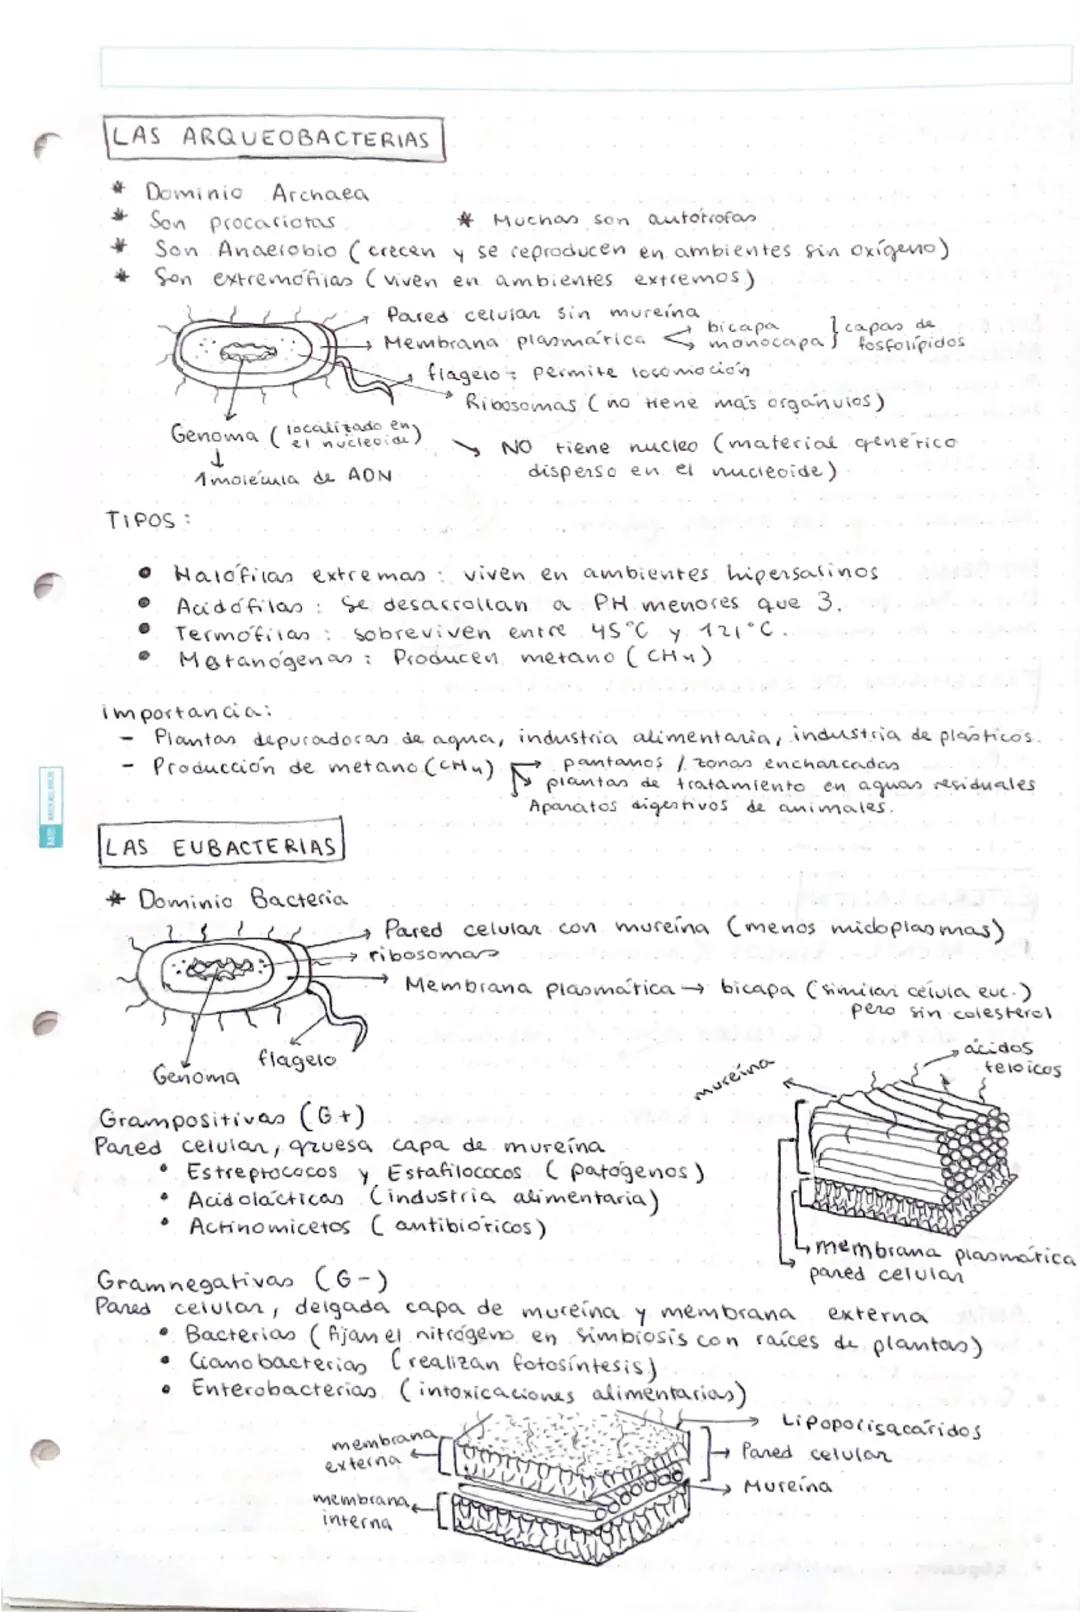 LAS ARQUEOBACTERIAS
* Dominio Archaea
* Son procariotas * Muchas son autótrofas
* Son Anaerobio (crecen y se reproducen en ambientes sin oxígeno)
* Son extremófilas (viven en ambientes extremos)
Pared celular sin mureína
Membrana plasmática bicapa monocapa } capas de fosfolípidos
flagelo: permite locomoción
Ribosomas (no tiene más orgánulos)
Genoma (localizado en el nucleoide)
1 molécula de ADN
NO tiene nucleo (material genérico
disperso en el nucleoide)
TIPOS:
• Halófilas extremas: viven en ambientes hipersalinos
• Acidófilas: Se desarrollan a PH menores que 3.
• Termófilas: sobreviven entre 45°C y 121°C.
• Metanógenas: Producen metano (CH4)
importancia:
- Plantas depuradoras de agua, industria alimentaria, industria de plásticos.
- Producción de metano (CH4) pantanos / zonas encharcadas
plantas de tratamiento en aguas residuales
Aparatos digestivos de animales.
LAS EUBACTERIAS
* Dominio Bacteria
Pared celular con mureína (menos micoplasmas)
ribosomas
Membrana plasmática → bicapa (similar célula euc.)
pero sin colesterol
flagelo
Genoma
mureína
ácidos
teloicos
membrana plasmática
pared celular
Grampositivas (G+)
Pared celular, gruesa capa de mureína
• Estreptococos y Estafilococos (patógenos)
• Acidolácticas (industria alimentaria)
• Actinomicetos (antibióticos)
Gramnegativas (G-)
Pared celular, delgada capa de mureína y membrana externa
• Bacterias (fijan el nitrógeno en simbiosis con raíces de plantas)
• Cianobacterias (realizan fotosíntesis)
• Enterobacterias (intoxicaciones alimentarias)
membrana
externa
membrana
interna
Lipopolisacáridos
Pared celular
Mureína